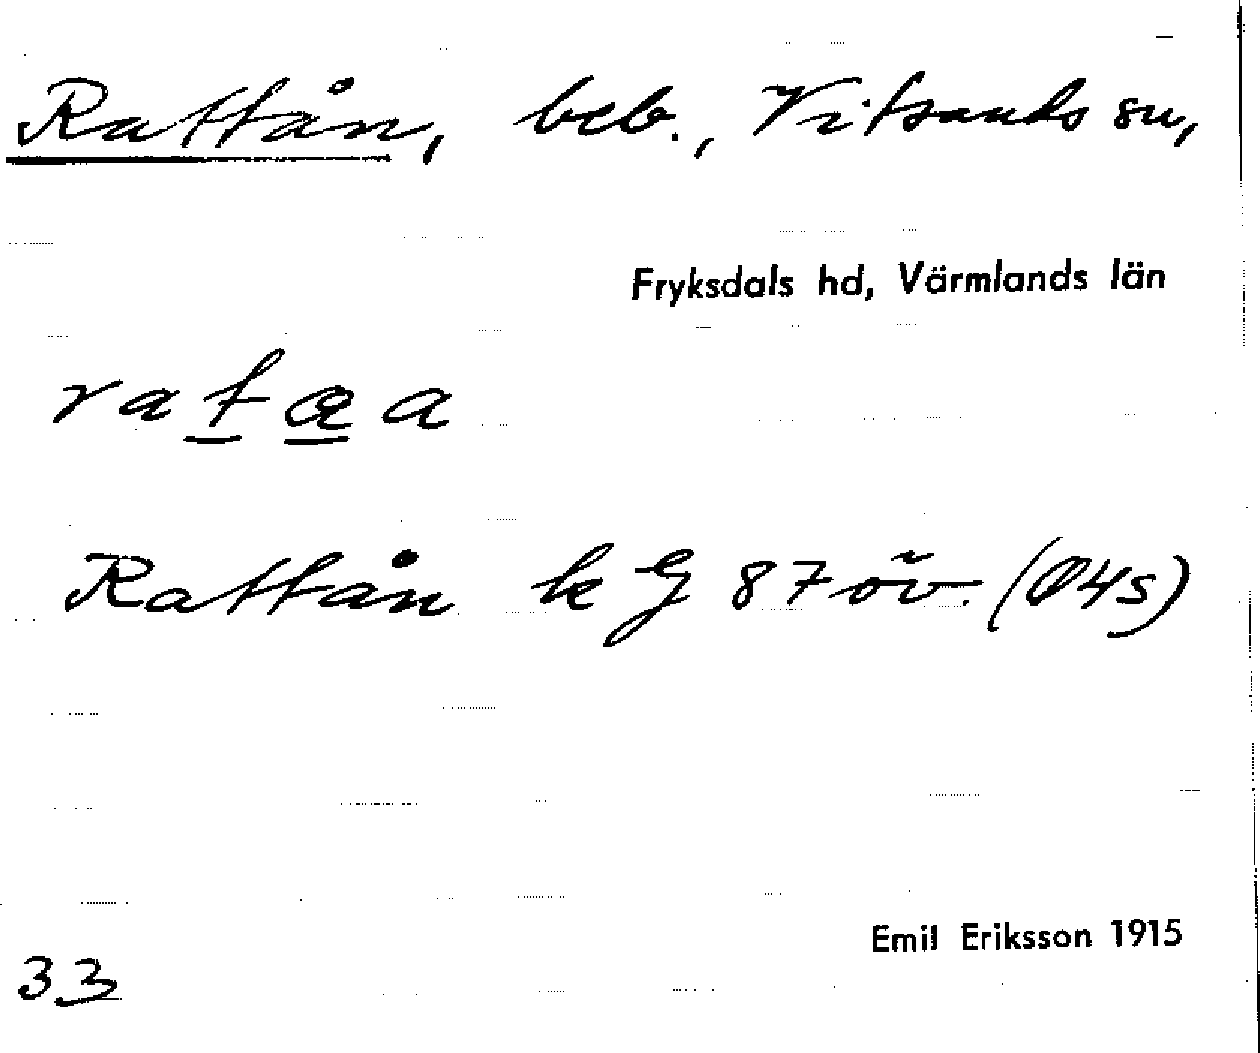 Rattån, beb., Vitsands sn,
Fryksdals hd, Värmlands län
rataa
Rattån k G 87 öv. (Ö4s)
Emil Eriksson 1915
33